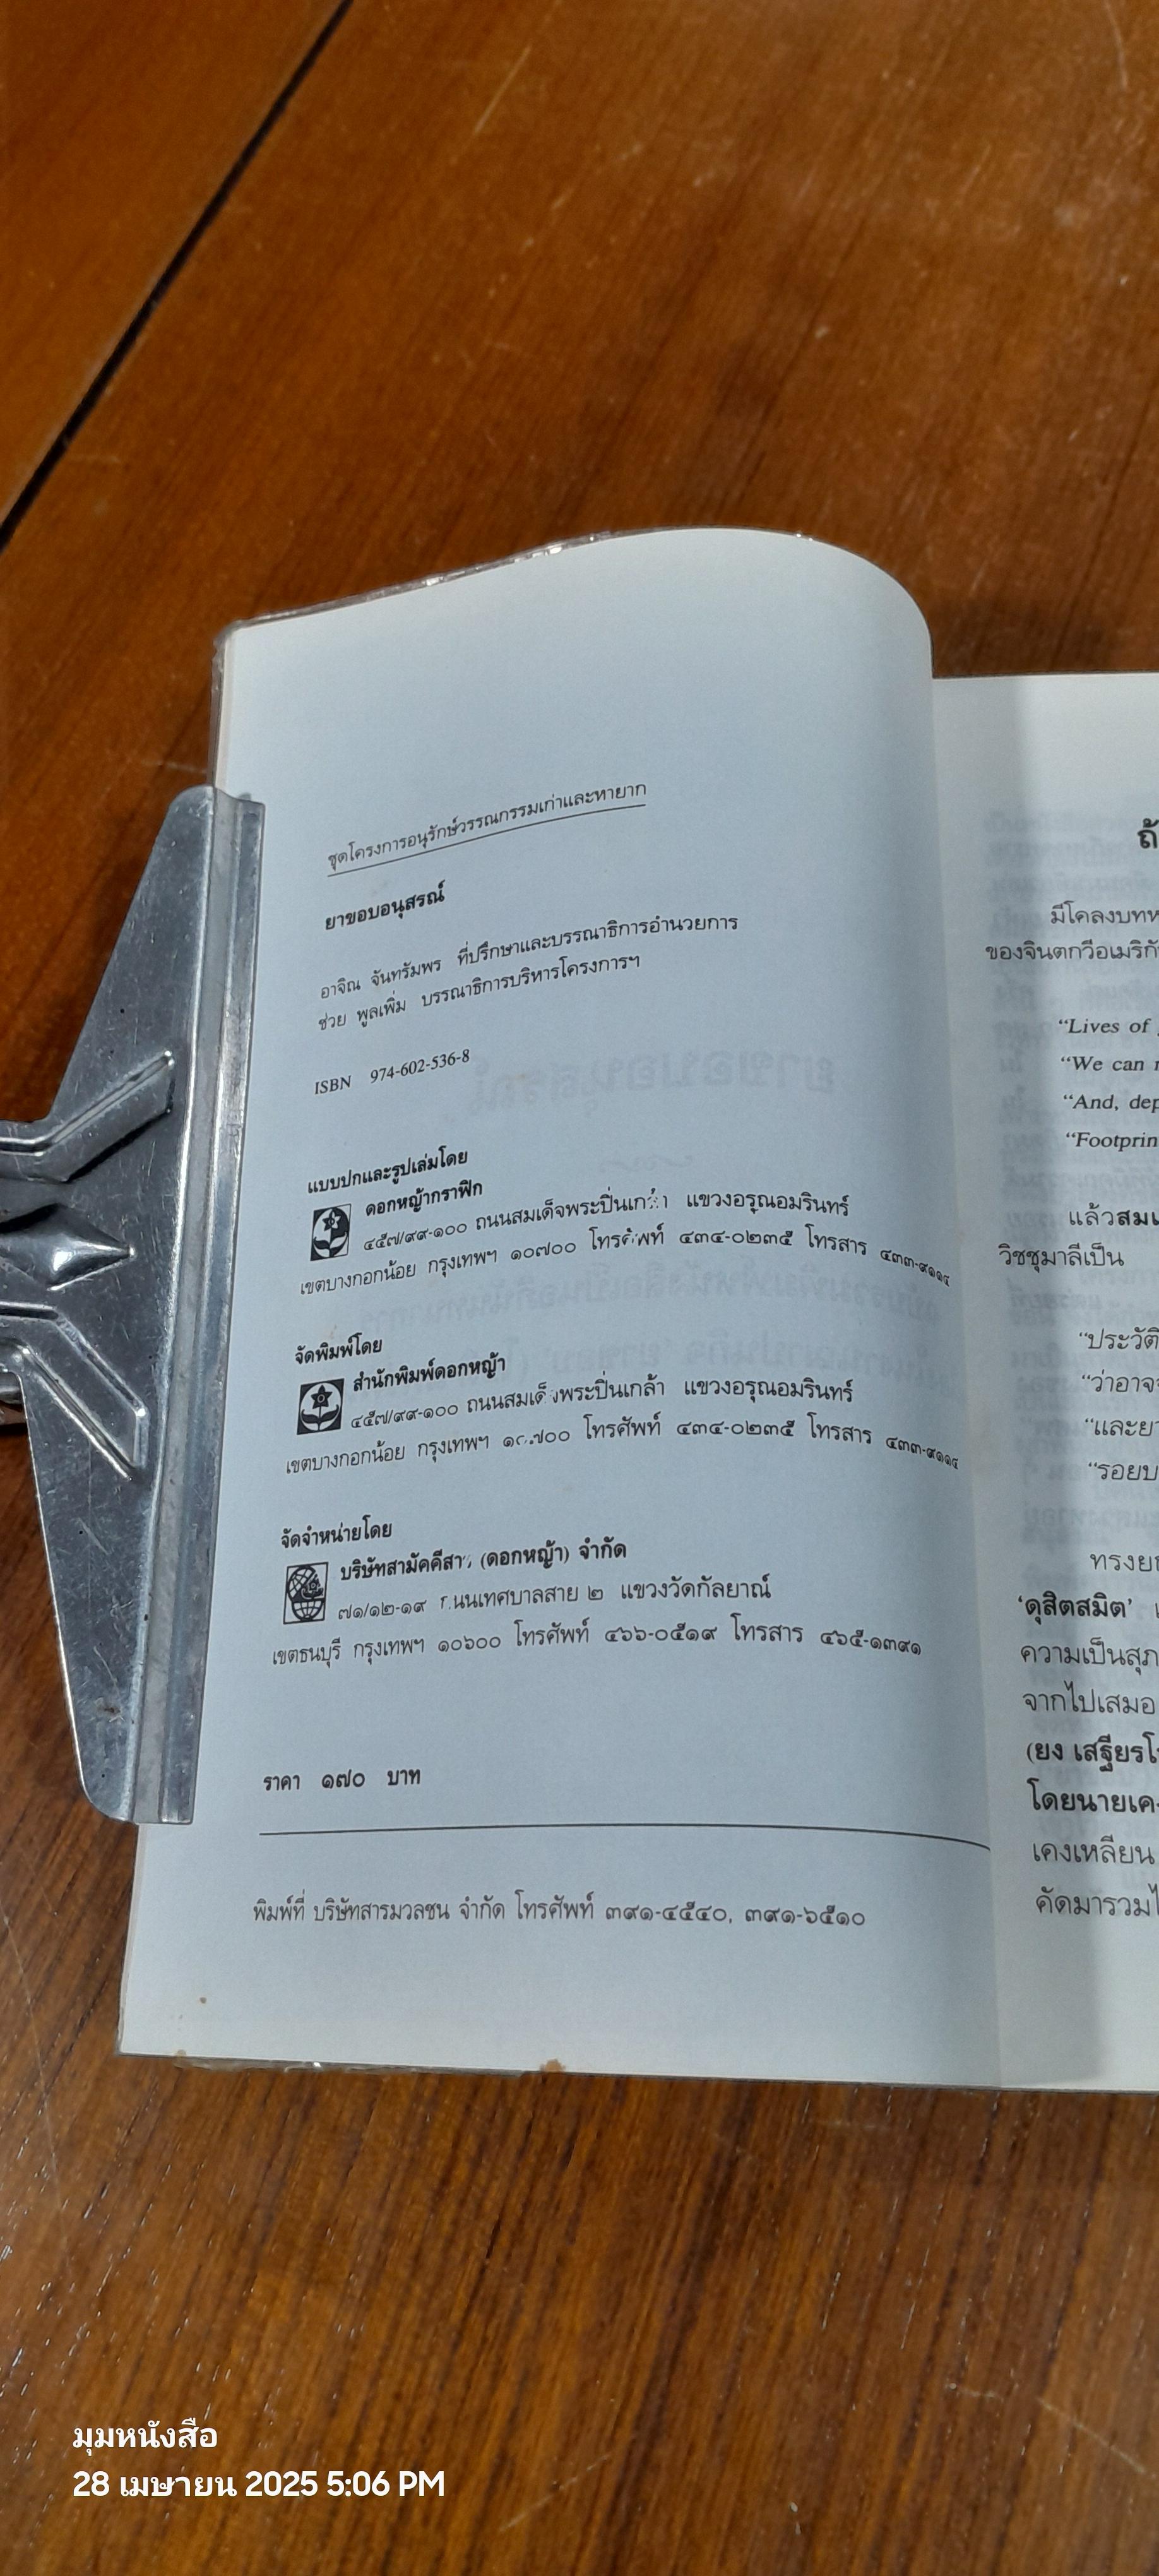 ชุดโครงการอนุรักษ์วรรณกรรมเก่าและหายาก
ยาขอบอนุสรณ์
อาจิณ จันทรัมพร ที่ปรึกษาและบรรณาธิการอำนวยการ
ช่วย พูลเพิ่ม บรรณาธิการบริหารโครงการฯ
ISBN 974-602-536-8
แบบปกและรูปเล่มโดย
ดอกหญ้ากราฟิก
๔๕๗/๙๙-๑๐๐ ถนนสมเด็จพระปิ่นเกล้า แขวงอรุณอมรินทร์
เขตบางกอกน้อย กรุงเทพฯ ๑๐๗๐๐ โทรศัพท์ ๔๓๔-๐๒๓๕ โทรสาร ๔๓๓-๙๑๑๔
จัดพิมพ์โดย
สำนักพิมพ์ดอกหญ้า
๔๕๗/๙๙-๑๐๐ ถนนสมเด็จพระปิ่นเกล้า แขวงอรุณอมรินทร์
เขตบางกอกน้อย กรุงเทพฯ ๑๐๗๐๐ โทรศัพท์ ๔๓๔-๐๒๓๕ โทรสาร ๔๓๓-๙๑๑๔
จัดจำหน่ายโดย
บริษัทสามัคคีสาร (ดอกหญ้า) จำกัด
๗๑/๑๒-๑๙ ถนนเทศบาลสาย ๒ แขวงวัดกัลยาณ์
เขตธนบุรี กรุงเทพฯ ๑๐๖๐๐ โทรศัพท์ ๔๖๖-๐๕๑๙ โทรสาร ๔๖๕-๑๓๙๑
ราคา ๑๗๐ บาท
พิมพ์ที่ บริษัทสารมวลชน จำกัด โทรศัพท์ ๓๙๑-๔๕๔๐, ๓๙๑-๖๕๑๐
มีโคลงบทห
ของจินตกวีอเมริกั
“Lives of
“We can
“And, dep
“Footprin
แล้วสมเ
วิชชุมาลีเป็น
“ประวัติ
“ว่าอาจ
“และยา
“รอยบ
ทรงย
‘ดุสิตสมิต’
ความเป็นสุภ
จากไปเสมอ
(ยง เสฐียรโ
โดยนายเค
เคงเหลียน
คัดมารวมไ
มุมหนังสือ
28 เมษายน 2025 5:06 PM